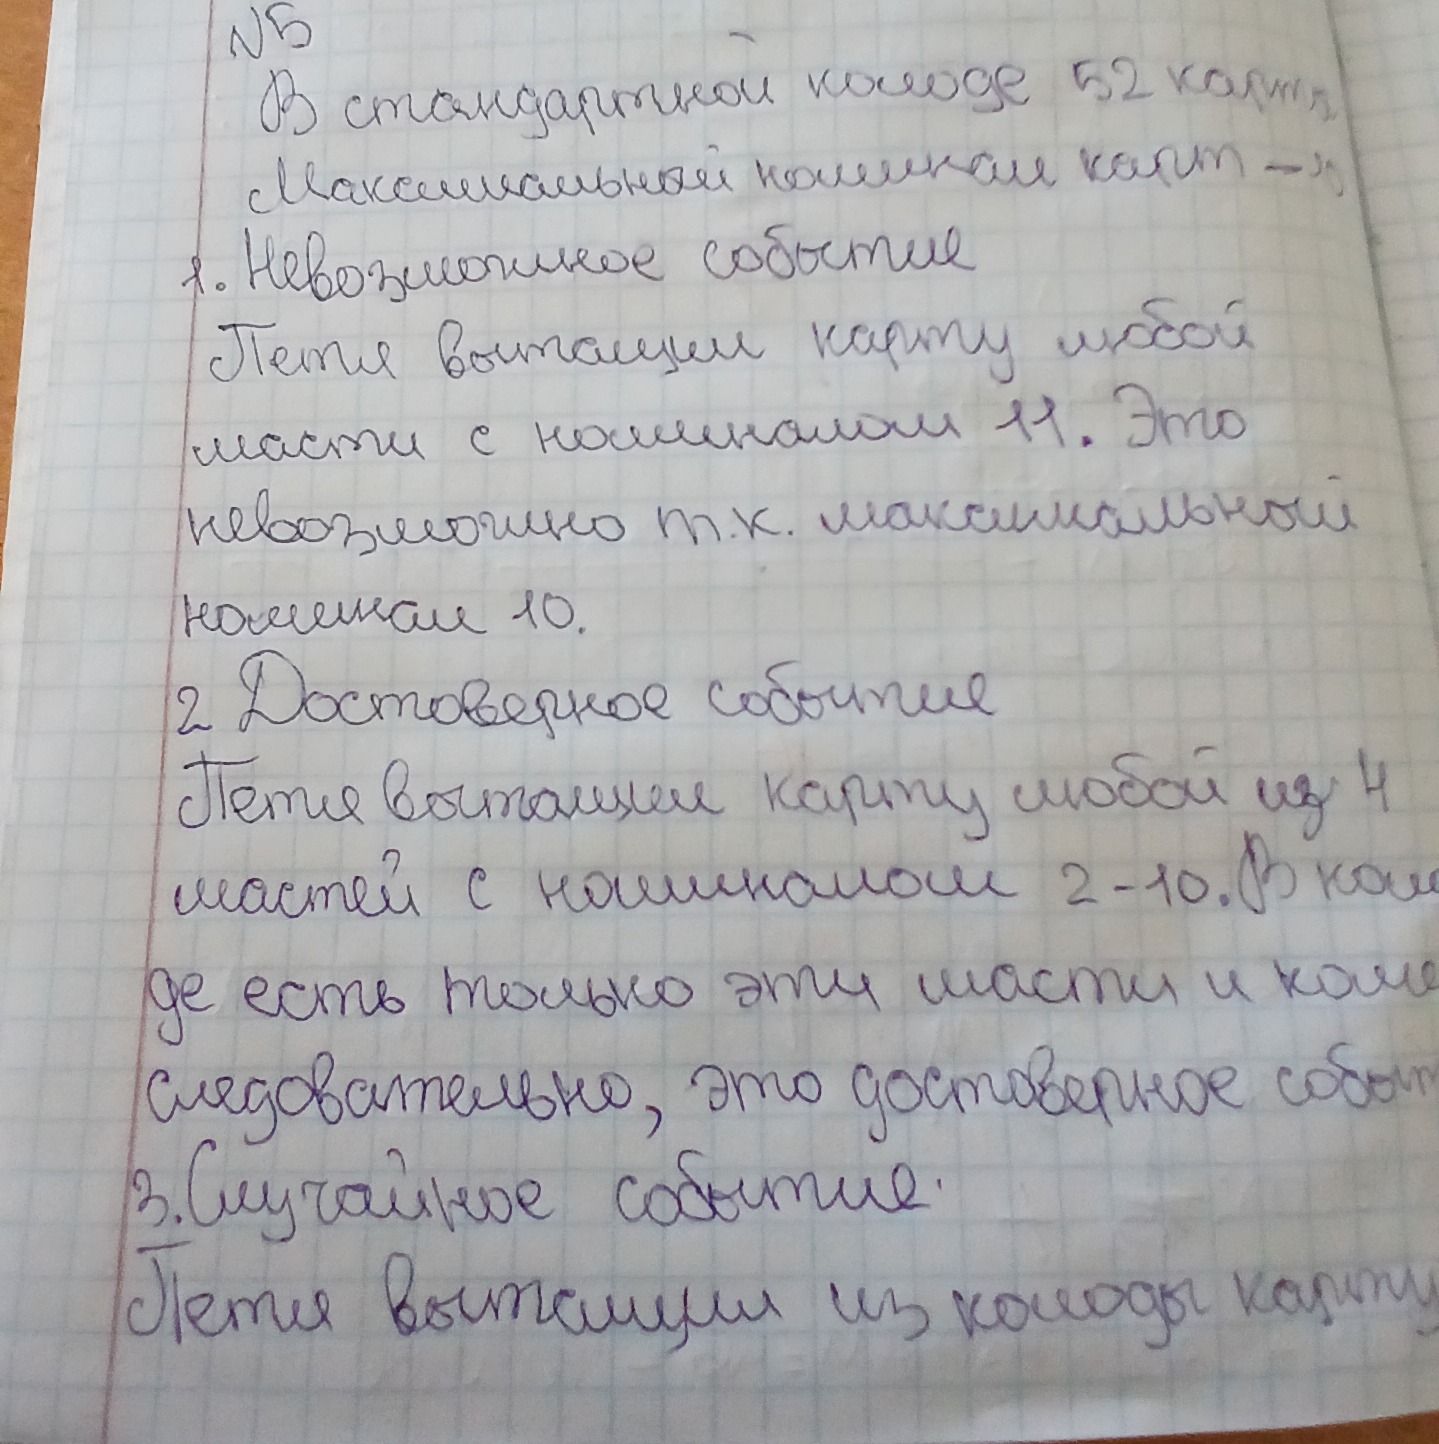 №5
В стандартной колоде 52 карты
Максимальный номинал карт –
1. Невозможное событие
Петя вытащил карту любой
масти с номиналом 11. Это
невозможно т.к. максимальный
номинал 10.
2 Достоверное событие
Петя вытащил карту любой из 4
мастей с номиналом 2-10. В коло
де есть только эти масти и номи
следовательно, это достоверное событ
3. Случайное событие.
Петя вытащил из колоды карту